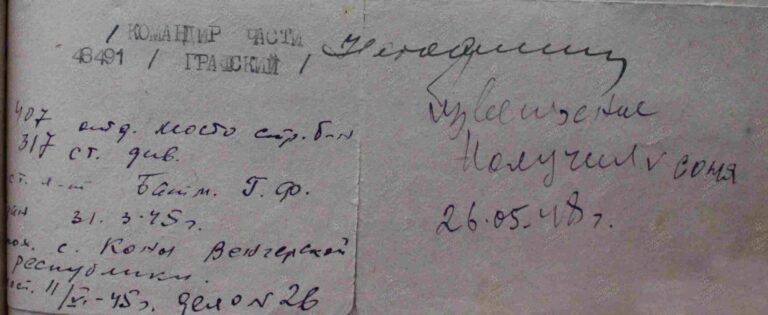 / КОМАНДИР ЧАСТИ
48491 / ГРАФСКИЙ /
407 отд. мосто стр. б-н
317 ст. див.
ст. л-т Батм. Г. Ф.
31. 3-45 г.
с. Коны Венгерской
республики.
11/VI-45 г. дело № 26
извещение
Получил Соня
26.05.48 г.